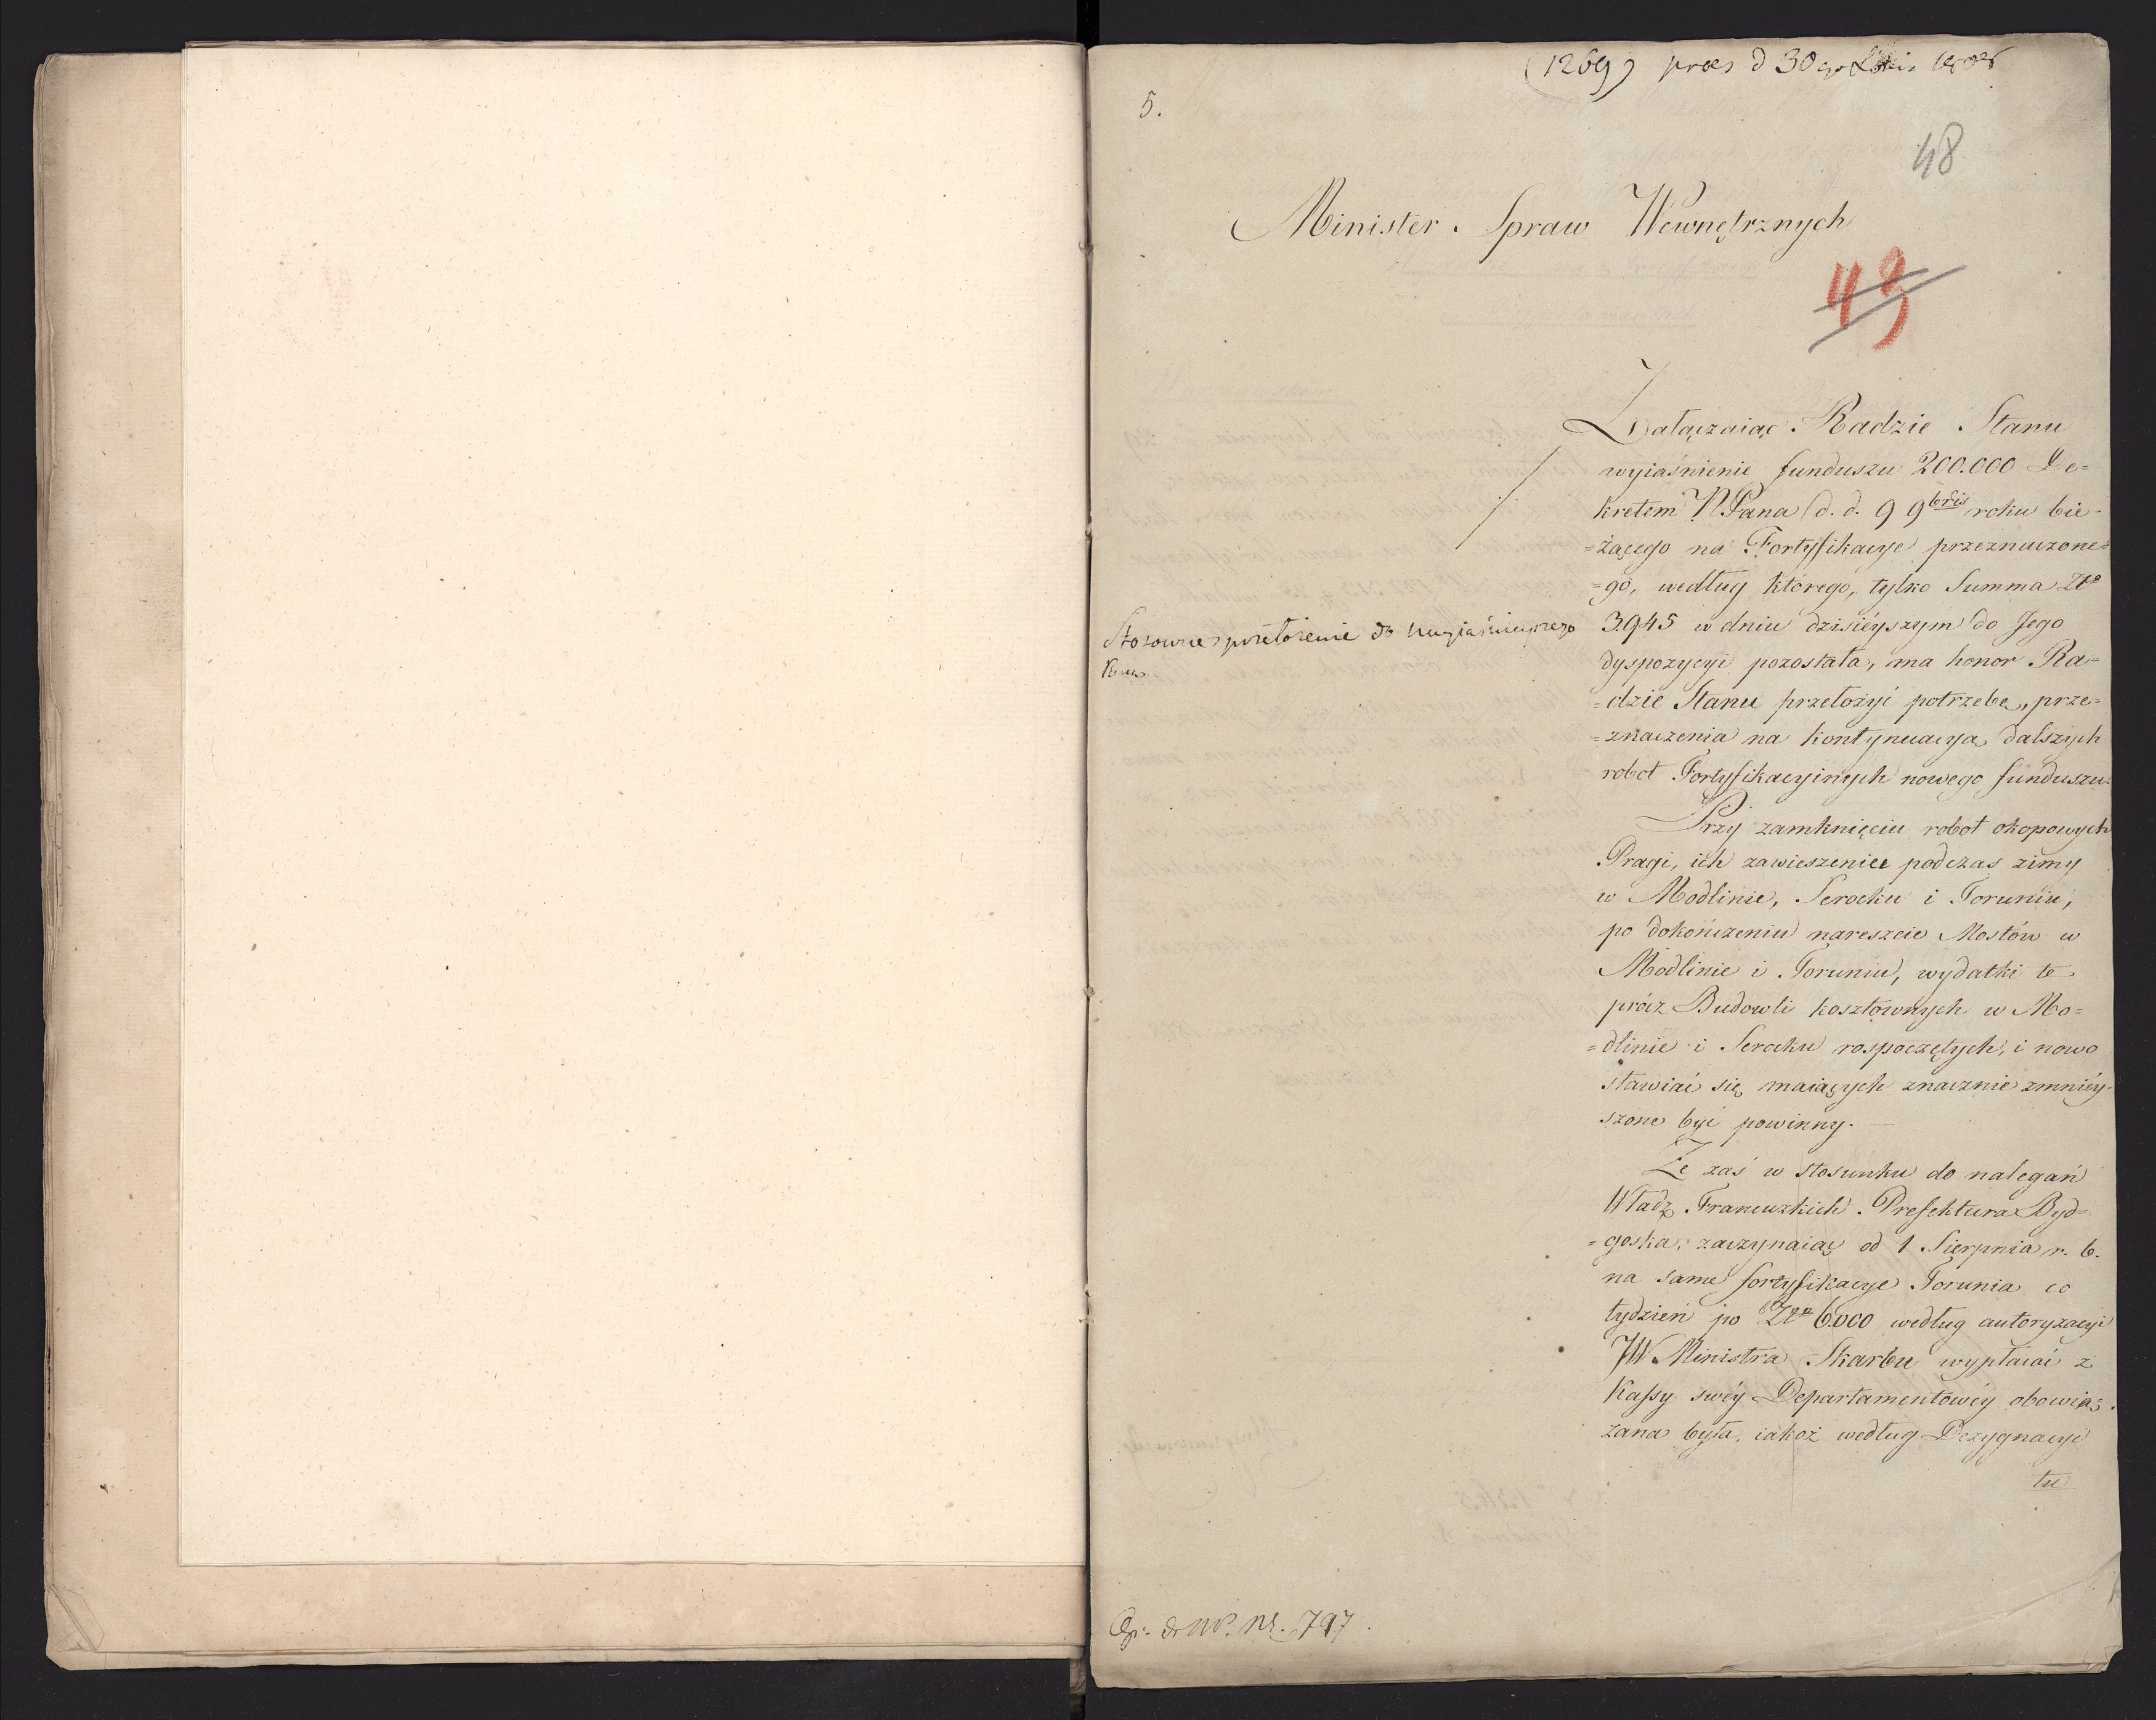 (1269) praes d 30 go
5.
48
Minister Spraw Wewnętrznych
49
Załączaiąc Radzie Stanu
wyiaśnienie funduszu 200.000 De=
kretem N Pana d. d. 9 9bris roku bie-
=żącego na Fortyfikacye przeznaczone=
=go, według którego, tylko Summa Złp
3945 w dniu dzisieyszym do Jego
dyspozycyi pozostała, ma honor Ra=
=dzie Stanu przełożyć potrzebę, prze=
=znaczenia na kontynuacyą dalszych
robot Fortyfikacyinych nowego funduszu.
Stosowne przełożenie do Nayiaśnieyszego
Przy zamknięciu robot okopowych
Pragi, ich zawieszenie podczas zimy
w Modlinie, Serocku i Toruniu,
po dokończeniu nareszcie Mostów w
Modlinie i Toruniu, wydatki te
prócz Budowli kosztownych w Mo=
=dlinie i Serocku rospoczętych, i nowo
stawiać się maiących znacznie zmniéy-
szone być powinny. —
Że zaś w stosunku do nalegań
Władz Francuzkich Prefektura Byd=
=goska, zaczynaiąc od 1 Sierpnia r. b.
na same fortyfikacye Torunia co
tydzień po Złp 6.000 według autoryzacyi
JW Ministra Skarbu wypłacać z
Kassy swéy Departamentowéy obowią=
zana była, iakoż według Dezygnacyi
tu
Nr. 797.